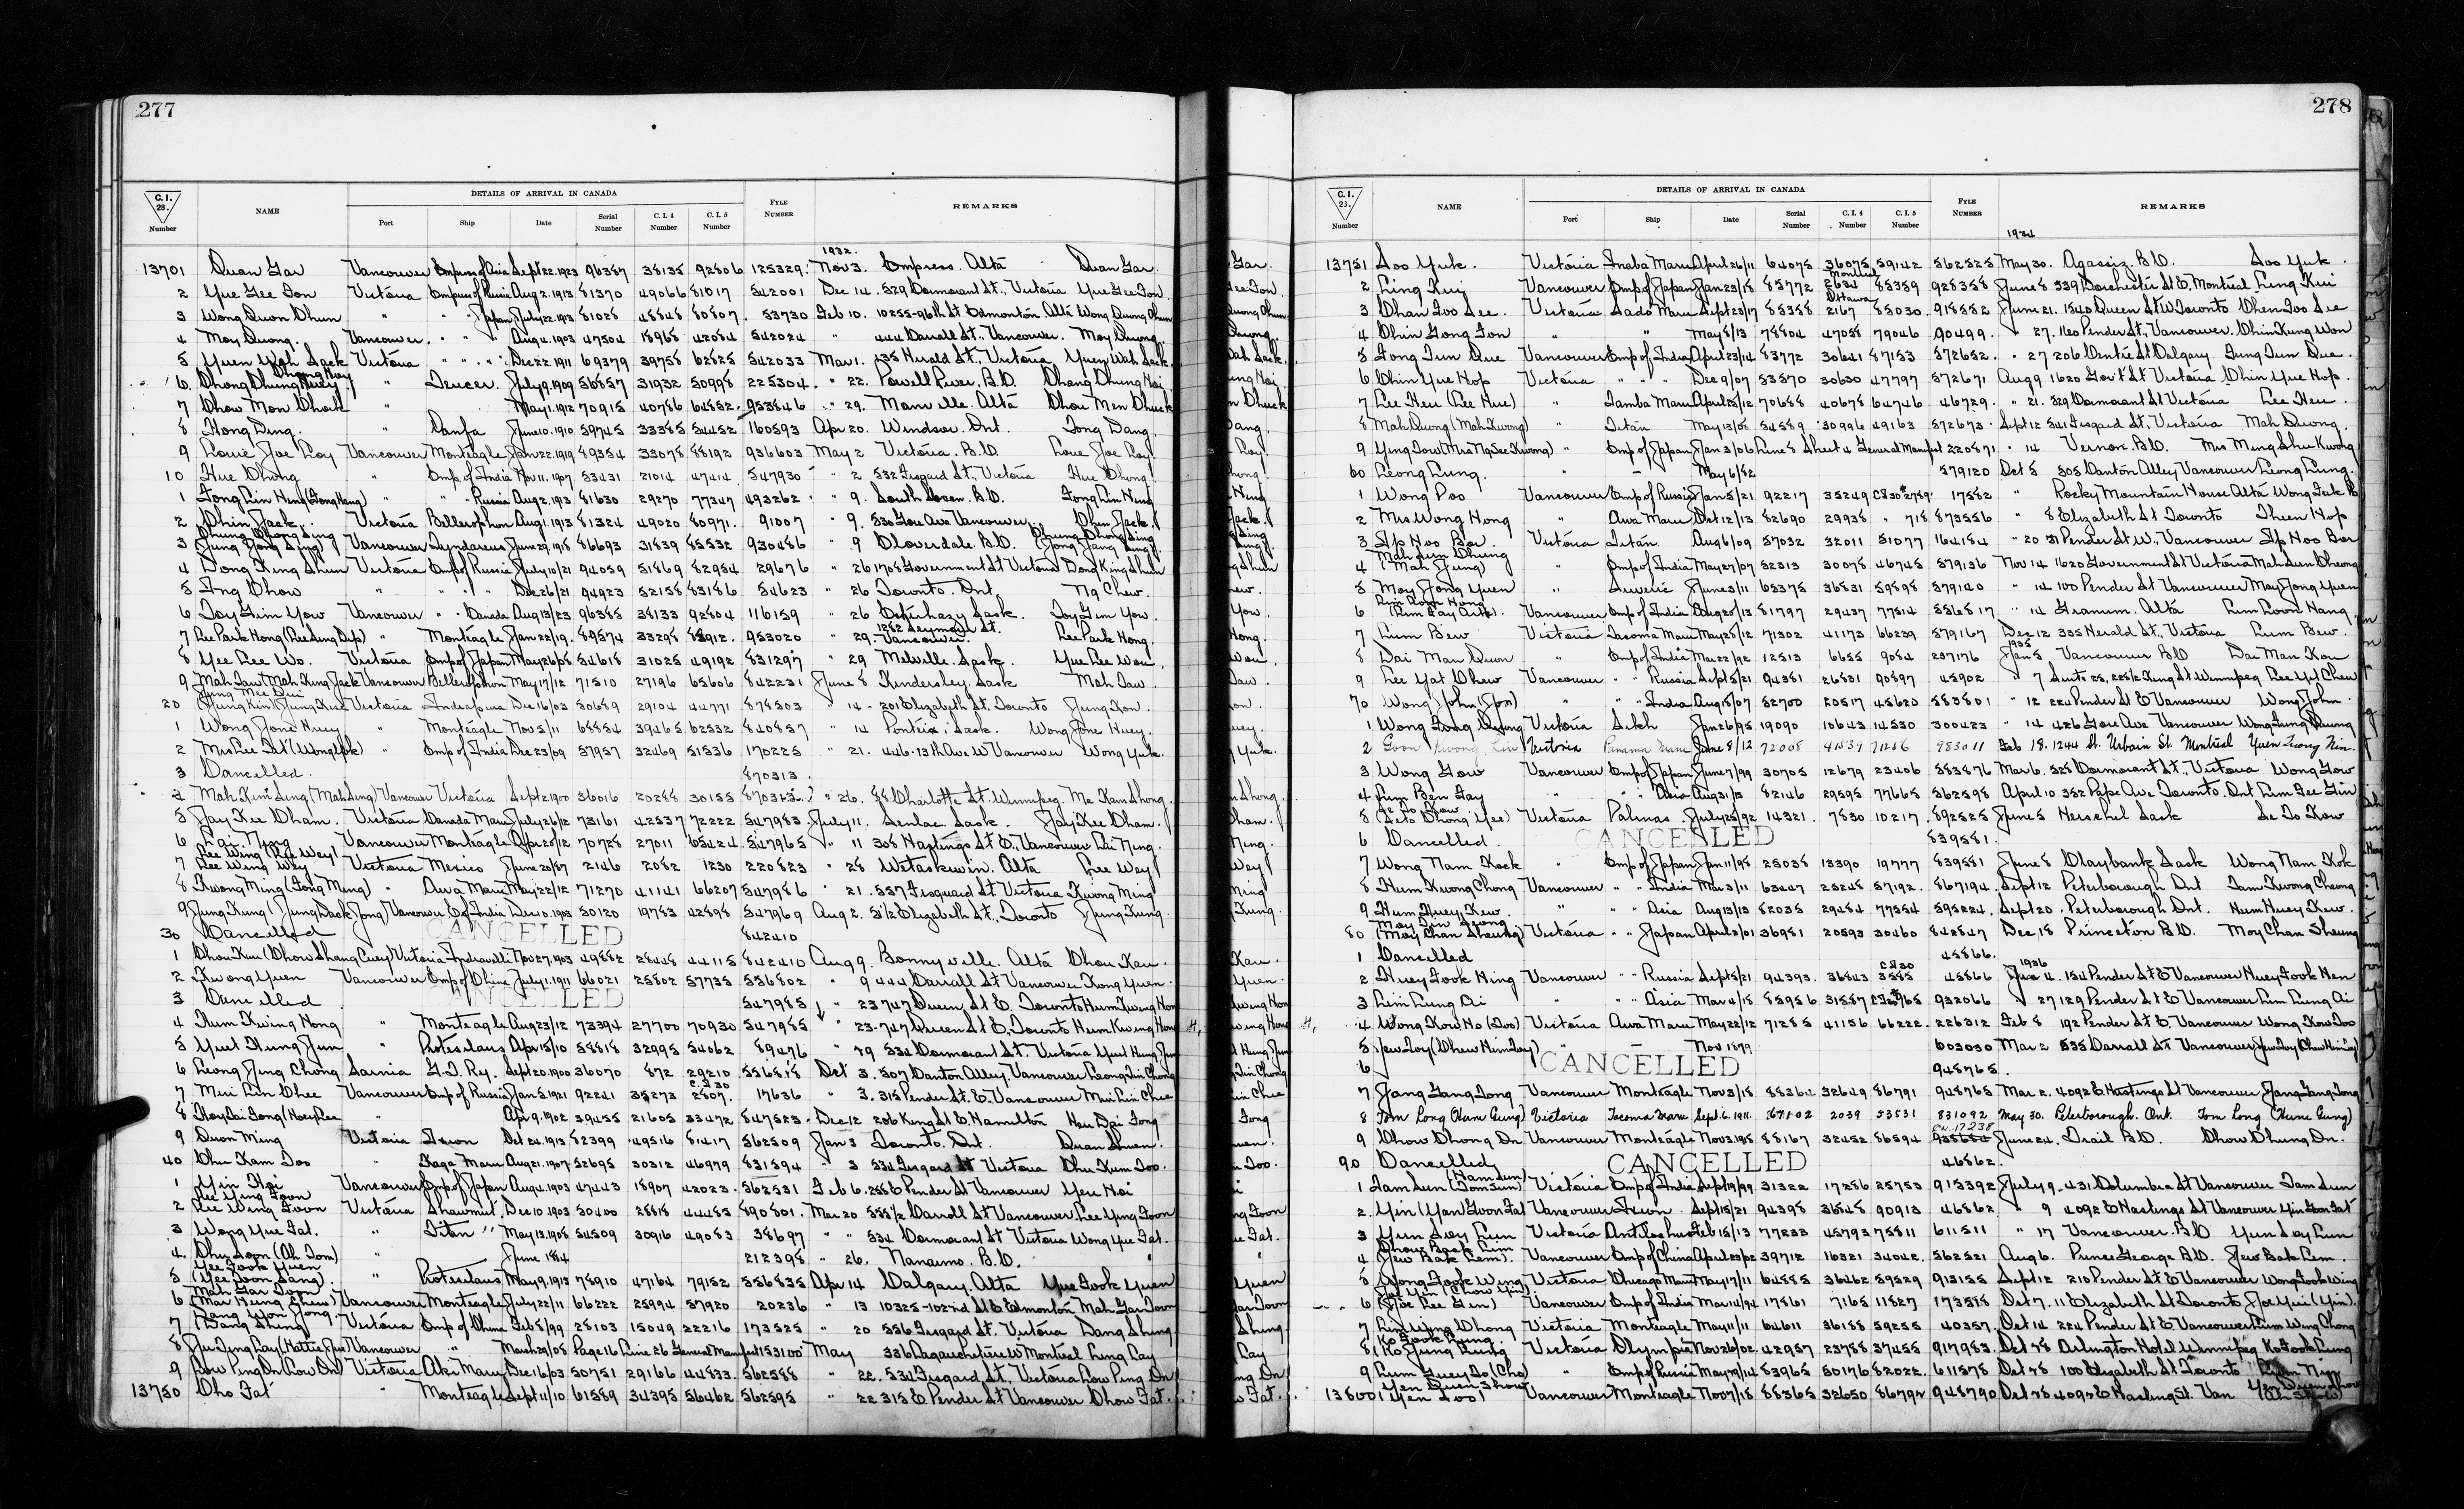 277
C.I. 28. Number NAME DETAILS OF ARRIVAL IN CANADA Port Ship Date Serial Number C.I.4 Number C.I.5 Number FYLE NUMBER REMARKS
1932.
13701 Quan Gar Vancouver Empress of Asia Sept 22.1923 96387 38135 92806 125329. Nov 3. Empress. Alta Quan Gar.
2 Yue Gee Fon Victoria Empress of Russia Aug 2.1913 81370 49066 81017 542001 Dec 14. 529 Cormorant St., Victoria Yue Gee Fon.
3 Wong Quon Chun " " Japan July 22.1913 81028 48848 80807. 53730 Feb 10. 10255-96th St Edmonton. Alta Wong Quong Chun
4 Moy Quong. Vancouver. " " Aug 4.1903 47504 18968 42084 542024 " 444 Carrall St., Vancouver. Moy Quong.
5 Yuen Wah Sack Victoria " " Dec 22.1911 69379 39758 62825 542033 Mar 1. 535 Herald St., Victoria Yuen Wah Sack.
6. Chong Chung Huey " Teucer. July 9.1909 56857 31932 50998 225304. " 22. Powell River, B.C. Chang Chung Hoi
7 Chow Mon Chook " May 1.1912 70915 40786 64852. 953846 " 29. Mannville. Alta Chou Men Chuck
8 Hong Ding. " Panfa June 10.1910 59745 33385 54452 160593 Apr 20. Windsor. Ont. Tong Dang.
9 Louie Joe Roy Vancouver Monteagle Jan 22.1919 89354 33078 88192 936603 May 2 Victoria. B.C. Loue Joe Roy.
10 Hue Chong " Emp of India Nov 11.1907 53431 21014 47414. 547930 " 2 532 Fisgard St., Victoria Hue Chong.
1 Fong Lin Heng (Fong Hang) " " Russia Aug 2.1913 81630 29270 77347 493262 " 9. South Slocan. B.C. Fong Lin Heng
2 Chin Jack. Victoria Bellerophon Aug 1.1913 81324 49020 80971. 91007 " 9. 830 Gore Ave Vancouver. Chin Jack.
3 Chung Chong Sing (Jung Jong Sing) Vancouver Tyndareus June 29.1918 86693 31839 85532 930486 " 9 Cloverdale. B.C. Chung Chong Sing (Jong Jang Sing)
4 Dong King Shun Victoria Emp of Russia July 10/21 94059 51869 82954 29676 " 26 1708 Government St Victoria Dong King Shun
5 Ing Chow " " " Dec 26/21 94923 52158 83186 54623 " 26 Toronto. Ont. Ng Chew.
6 Joy Gim Yow Vancouver " Canada Aug 13/23 96385 38133 92804 116159 " 26 Esterhazy Sask. Joy Gim Yow.
7 Lee Park Hong (Lee Sung Dip) " Monteagle Jan 22/19. 89574 33298 88912. 953020 " 29. 1282 Seymour St. Vancouver. Lee Park Hong.
8 Yee Lee Wo. Victoria Emp of Japan May 26/08 54618 31025 49192 831297 " 29 Melville. Sask. Yue Lee Wou.
9 Mah Taw (Mah King Jack) Vancouver Bellerophon May 17/12 71510 27196 65606 842231 June 8 Kindersley. Sask Mah Taw.
20 Jung Mee Sui (Jung Kin) (Jung Kue) Victoria Indrapura Dec 16/03 50689 29104 44771 878503 " 14. 201 Elizabeth St. Toronto Jung Kon.
1 Wong Jone Huey " Monteagle Nov 5/11 68854 39465 62532 840857 " 14 Ponteix. Sask. Wong Jone Huey.
2 Mrs Lee Fat (Wong Yok) " Emp of India Dec 23/09 57957 32469 51536 170225 " 21. 446-13th Ave W Vancouver Wong Yuk.
3 Cancelled. 870313.
4 Mah Kim Sing (Mah Sing) Vancouver Victoria Sept 2.1900 36016 20288 30155 870313. " 26. 88 Charlotte St. Winnipeg. Ma Kam Shong.
5 Jay Kee Cham. Victoria Canada Maru July 26/12 73161 42537 72222 547983. July 11. Senlac. Sask. Jay Kee Cham.
6 Lai Ning Vancouver Monteagle Apr 20/12 70728 27011 65424 547965 " 11 308 Hastings St E., Vancouver Lai Ning.
7 Lee Wing (Lee Wey) Lee Wing Wey Victoria Mexico June 20/87 2146 2082 1230 220823 " 28 Wetaskiwin. Alta Lee Wey
8 Kwong Ming (Fong Meng) " Awa Maru May 22/12 71270 41141 66207 547986 " 21. 557 Fisguard St Victoria Kwong Ming
9 Jung Kung (Jung Sack Jong) Vancouver E. of India Dec 10.1903 50120 19783 42898 547969 Aug 2. 31½ Elizabeth St., Toronto Jung Kung.
30 Cancelled CANCELLED 842410
1 Chou Kau (Chow Shang Cuey) Victoria Indravelli Nov 27.1903 49882 28448 44115 842410 Aug 9. Bonnyville. Alta Chou Kau.
2 Kwong Yuen Vancouver Emp of China July 1.1911 66021 25802 57735 556802 " 9 444 Carrall St., Vancouver Kong Yuen.
3 Cancelled CANCELLED 547985 " 23 747 Queen St E. Toronto Hum Kwing Hong
4 Hum Kwing Hong " Monteagle Aug 23/12 73394 27700 70930 547985 " 23. 747 Queen St E., Toronto Hum Kwing Hong
5 Yuet Hung Jun " Protesilaus Apr 15/10 58818 32995 54062 89476 " 29 534 Cormorant St. Victoria Yuet Hung Jun
6 Leong Jing Chong Sarnia G.T. Ry. Sept 20.1900 36070 872 29210 556818 Oct 3. 507 Canton Alley. Vancouver Leong Jin Chong
7 Mei Lin Chee Vancouver Emp of Russia Jan 5.1921 92241 35273 C.I.30 2807. 17636 " 3. 315 Pender St. E. Vancouver Mei Lin Chee
8 Hoy Dai Fong (Hoey Lee " Apr 9.1902 39455 21605 33472 847523. Dec 12 206 King St E Hamilton Hou Dai Fong
9 Quon Ming Victoria Ixion Oct 24.1913 82399 49516 81417 562509 Jan 3 Toronto. Ont.
40 Chu Kam Too " Kaga Maru Aug 21.1907 52695 30312 46979 831594 " 3 534 Fisgard St Victoria Chu Kum Too.
1 Yin Hoi Vancouver Emp of Japan Aug 4.1903 47443 18907 42023. 562531 Feb 6. 258 E Pender St Vancouver Yeu Hoi
2 Lee Ying Foon Lee Wing Foon Victoria Shawmut. Dec 10.1903 50400 28818 44485 890801. Mar 20 558½ Carroll St Vancouver. Lee Ying Foon
3 Wong Yue Fat. " Titan " May 13.1908 54509 30916 49083 38697 " " 534 Cormorant St Victoria Wong Yue Fat.
4. Chu Soon (Ah Tom) " June 1884 212398 " 26. Nanaimo. B.C. "
5 Yee Fook Yuen (Yee Soon Sang). " Protesilaus May 9.1913 78910 47164 79152 556835 Apr 14 Calgary. Alta Yue Fook Yuen
6 Mah Gar Foon (Mar Hung Chew) Vancouver Monteagle July 22/11 66222 25994 57920 20236 " 13 10325-102nd St E Edmonton Mah Gar Foon
7 Dang Won Jong (Dang Shing) Victoria Emp of China Feb 8/99 28103 15049 22216 173525 " 20 556 Fisgard St. Victoria Dang Shing
8 Vancouver " March 29/08 Page 16 Line 26 General Manifest 153100 May 336 Lagauchetiere W Montreal Ling Cay
9 Low Ping On (Low On) Victoria Aki Maru Dec 16/03 50751 29166 44833. 562588 " 22. 534 Fisgard St., Victoria Low Ping On
13750 Cho Fat " Monteagle Sept 11/10 61589 34395 56462 562595 " 22 315 E Pender St Vancouver Chow Fat.
278
C.I. 28. Number NAME DETAILS OF ARRIVAL IN CANADA Port Ship Date Serial Number C.I.4 Number C.I.5 Number FYLE NUMBER REMARKS
1934
13751 Soo Yuk. Victoria Inaba Maru April 26/11 64075 36075 59142 562525 May 30. Agassiz. B.C. Soo Yuk.
2 Ling Kui Vancouver Emp of Japan Jan 23/18 85772 Montreal 2634 85359 928358 June 8 339 Dorchester St E. Montreal Ling Kui
3 Chan Foo See. Victoria Sado Maru Sept 23/17 85358 Ottawa 2167 85030. 918552 June 21. 1540 Queen St W Toronto Chen Foo See
4 Chin Gong Fon " " May 8/13 78804 47058 79046 90499. " 27. 160 Pender St., Vancouver. Chin Kung Won
5 Fong Jun Que Vancouver Emp of India April 23/14 83772 30641 87153 572652. " 27 206 Centre St Calgary Fung Jun Que.
6 Chin Yue Hop Victoria " " Dec 9/07 53570 30630 47797 572671 Aug 9 1620 Gov't St Victoria Chin Yue Hop.
7 Lee Heu (Lee Hue) " Tamba Maru April 25/12 70688 40678 64746 46729. " 21. 529 Cormorant St Victoria Lee Heu.
8 Mah Quong (Mah Kwong) " Titan May 13/08 54589 30996 49163 572673 Sept 12 541 Fisgard St., Victoria Mah Quong.
9 Ying Sow (Mrs Ng See Kwong) " Emp of Japan Jan 3/06 Line 8 Sheet 4 General Manifest 220871 " 14 Vernon. B.C. Mrs Meng Shu Kwong
60 Leong Lung. " May 6/82 579120 Oct 8 505 Canton Alley Vancouver Leong Lung.
1 Wong Poo Vancouver Emp of Russia Jan 5/21 92217 35249 C.I.30 2789. 17582 " Rocky Mountain House Alta
2 Mrs Wong Hong " Awa Maru Oct 12/13 82690 29938 " 718 873556 " 8 Elizabeth St Toronto Theen Hop
3 Ip Hoo Bor. Victoria Titan Aug 6/09 57032 32011 51077 164184 " 20 31 Pender St W., Vancouver Ip Hoo Bor
4 Mah Sun Chung (Mah Jung) " Emp of India May 27/07 52313 30078 46745 579136 Nov 14 1620 Government St Victoria Mah Sun Cheong
5 Moy Jong Yuen " Suveric June 3/11 65375 36831 59898 579140 " 14 100 Pender St Vancouver Moy Jong Yuen
6 Lim Loon Hong (Lim Fay Aik). Vancouver Emp of India Aug 20/13 81797 29437 77514 556817 " 14 Granum. Alta Lim Loon Hang.
7 Lum Bew Victoria Tacoma Maru May 28/12 71302 41173 66239 579167 Dec 12 535 Herald St., Victoria Lum Bew.
1935
8 Dai Man Quon " Emp of India Mar 22/92 12513 6655 9084 237176 Jan 5 Vancouver B.C Dai Man Kou
9 Lee Yat Chew " " Russia Sept 5/21 94381 26831 90897 45902 " 7 Suite 25, 225½ King St Winnipeg Lee Yet Chew
70 Wong John (Jon) " " India Aug 18/07 52700 20517 45620 583801 " 12 224 Pender St E Vancouver Wong John.
1 Wong Fong Quong Victoria Sikh Jan 26/95 19090 10643 14530 300423 " 14 426 Gore Ave Vancouver Wong Fung Quong
2 Goon Kwong Lin Victoria Panama Maru June 8/12 72008 41539 71286 983011 Feb 18. 1244 St. Urbain St. Montreal Yuen Kwong Nin.
3 Wong Gow Vancouver Emp of Japan June 7/99 30705 12679 23406 583876 Mar 6. 528 Cormorant St., Victoria Wong Gow
4 Lum Ben Gay " " Asia Aug 31/13 82146 29595 77665 562598 April 10 352 Pape Ave Toronto. Ont Lim Gee Gin
5 Se To Kow (Seto Chong Yee) Victoria Palinas July 25/92 14321. 7830 10217 892525 June 5 Herschel Sask Se To Kow
6 Cancelled. CANCELLED 839581.
7 Wong Nam Kock " Emp of Japan Jan 11/98 25038 13390 19777 839581 June 8 Claybank Sask Wong Nam Kok
8 Hum Kwong Chong Vancouver " India Mar 3/11 63447 25248 57192. 867194. Sept 12 Peterborough Ont Tam Kwong Cheong
9 Hum Huey Kew. " " Asia Aug 13/13 82035 29484 77554 595224. Sept 20. Peterborough Ont. Hum Huey Kew.
80 Moy Jin Seong (Moy Chan Sheung) Victoria " Japan April 2/01 36981 20593 30460 842847 Dec 18 Princeton B.C. Moy Chan Sheung
1 Cancelled 45866.
1936
2 Huey Fook Hing Vancouver " Russia Sept 5/21 94393. 36843 C.I.30 3585 45866 Jan 4. 154 Pender St E Vancouver Huey Fook Hen
3 Lim Lung Oi " " Asia Mar 4/18 85956 31557 932066 " 27 129 Pender St E Vancouver Lim Lung Ai
4 Wong Kow Ho (Joo) Victoria Awa Maru May 22/12 71285 41156 66222. 226312 Feb 8 192 Pender St E. Vancouver Wong Kow Joo
5 Jew Joy (Chew Him Joy) " — Nov 1879 603030 Mar 2 535 Carrall St Vancouver Jew Joy (Chew Him Joy)
6 CANCELLED 948765.
7 Jang Gang Jong Vancouver Monteagle Nov 3/18 88364 32649 86791 948765 Mar 2. 409½ E Hastings St Vancouver Jang Gang Jong
8 Tom Long (Ham Gung) Victoria Tacoma Maru Sept. 6. 1911. 67102 2039 53531 831092 May 30. Peterborough. Ont. Tom Long (Hum Gung)
9 Chow Chong On Vancouver Monteagle Nov 3.1918 88167 32452 86594 June 24. Trail B.C. Chow Chung On.
90 Cancelled CANCELLED 46862.
1 Tam Sun (Ham Sun) (Tom Sun) Victoria Emp of India Sept 19/99 31322 17286 25753 915392 July 9 431 Columbia St Vancouver Tam Sun
2. Yin (Yan) Foon Fat Vancouver Ixion Sept 15/21 94398 36848 90913 46862. " 9 409½ E Hastings St Vancouver Yin Foon Fat
3 Yun Soy Lun Victoria Antilochus Feb 15/13 77233 45793 75811 611511 " 17 Vancouver. B.C Yun Soy Lun
4 Chow Back Lim (Jew Bak Lem). Vancouver Emp of China April 23/02 39712 16321 34042. 562521 Aug 6. Prince George B.C. Jew Bak Lem.
5 Wong Fook Wing Victoria Chicago Maru May 17/11 64885 36462 59529 913155 Sept 12 210 Pender St E Vancouver Wong Fook Wing
6 Joe Yin (Chow Yin) (Joe Lee Gin) Vancouver Emp of India Mar 14/94 17861 7165 11827 173518 Oct 7. 11 Elizabeth St Toronto Joe Yin (Yin).
7 Lim Wing Chong Victoria Monteagle May 11/11 64611 36188 59255 40357. Oct 14 224 Pender St E Vancouver Lim Wing Chong
8 Ko Fook Lung. (Ko Jung Lung Victoria Olympia Nov 26/02 42957 23788 37455 917983. Oct 28 Arlington Hotel Winnipeg Ko Fook Lung
9 Lum Guey So (Cho) " Emp of Russia May 29/14 83965 50176 82022. 611578 Oct 28 100 Elizabeth St Toronto
13800 Yen Quen Show (Yen Soo) Vancouver Monteagle Nov 7/18 88365 32650 86792 948790 Oct 28 409½ E Hastings St. Van Yen Quen Show